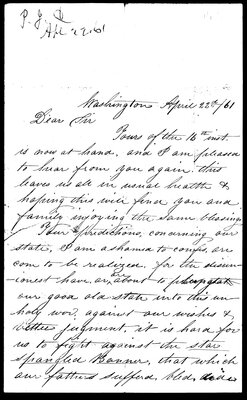 Apl 22. 61
Washington April 22nd/61
Dear Sir
Yours of the 16th inst.
is now at hand, and I am pleased
to hear from you again. this
leaves us all in usual health &
hoping this will find you and
family injoying the same blessing
Your predictions, concerning our
state, I am ashamed to confess, are
com to be realized, for the disun-
ionest have, or, about to
our good old state into this un-
holy war, against our wishes &
better jugment, it is hard for
us to fight against the star
spangled Banner, that which
our fathers sufferd bled,